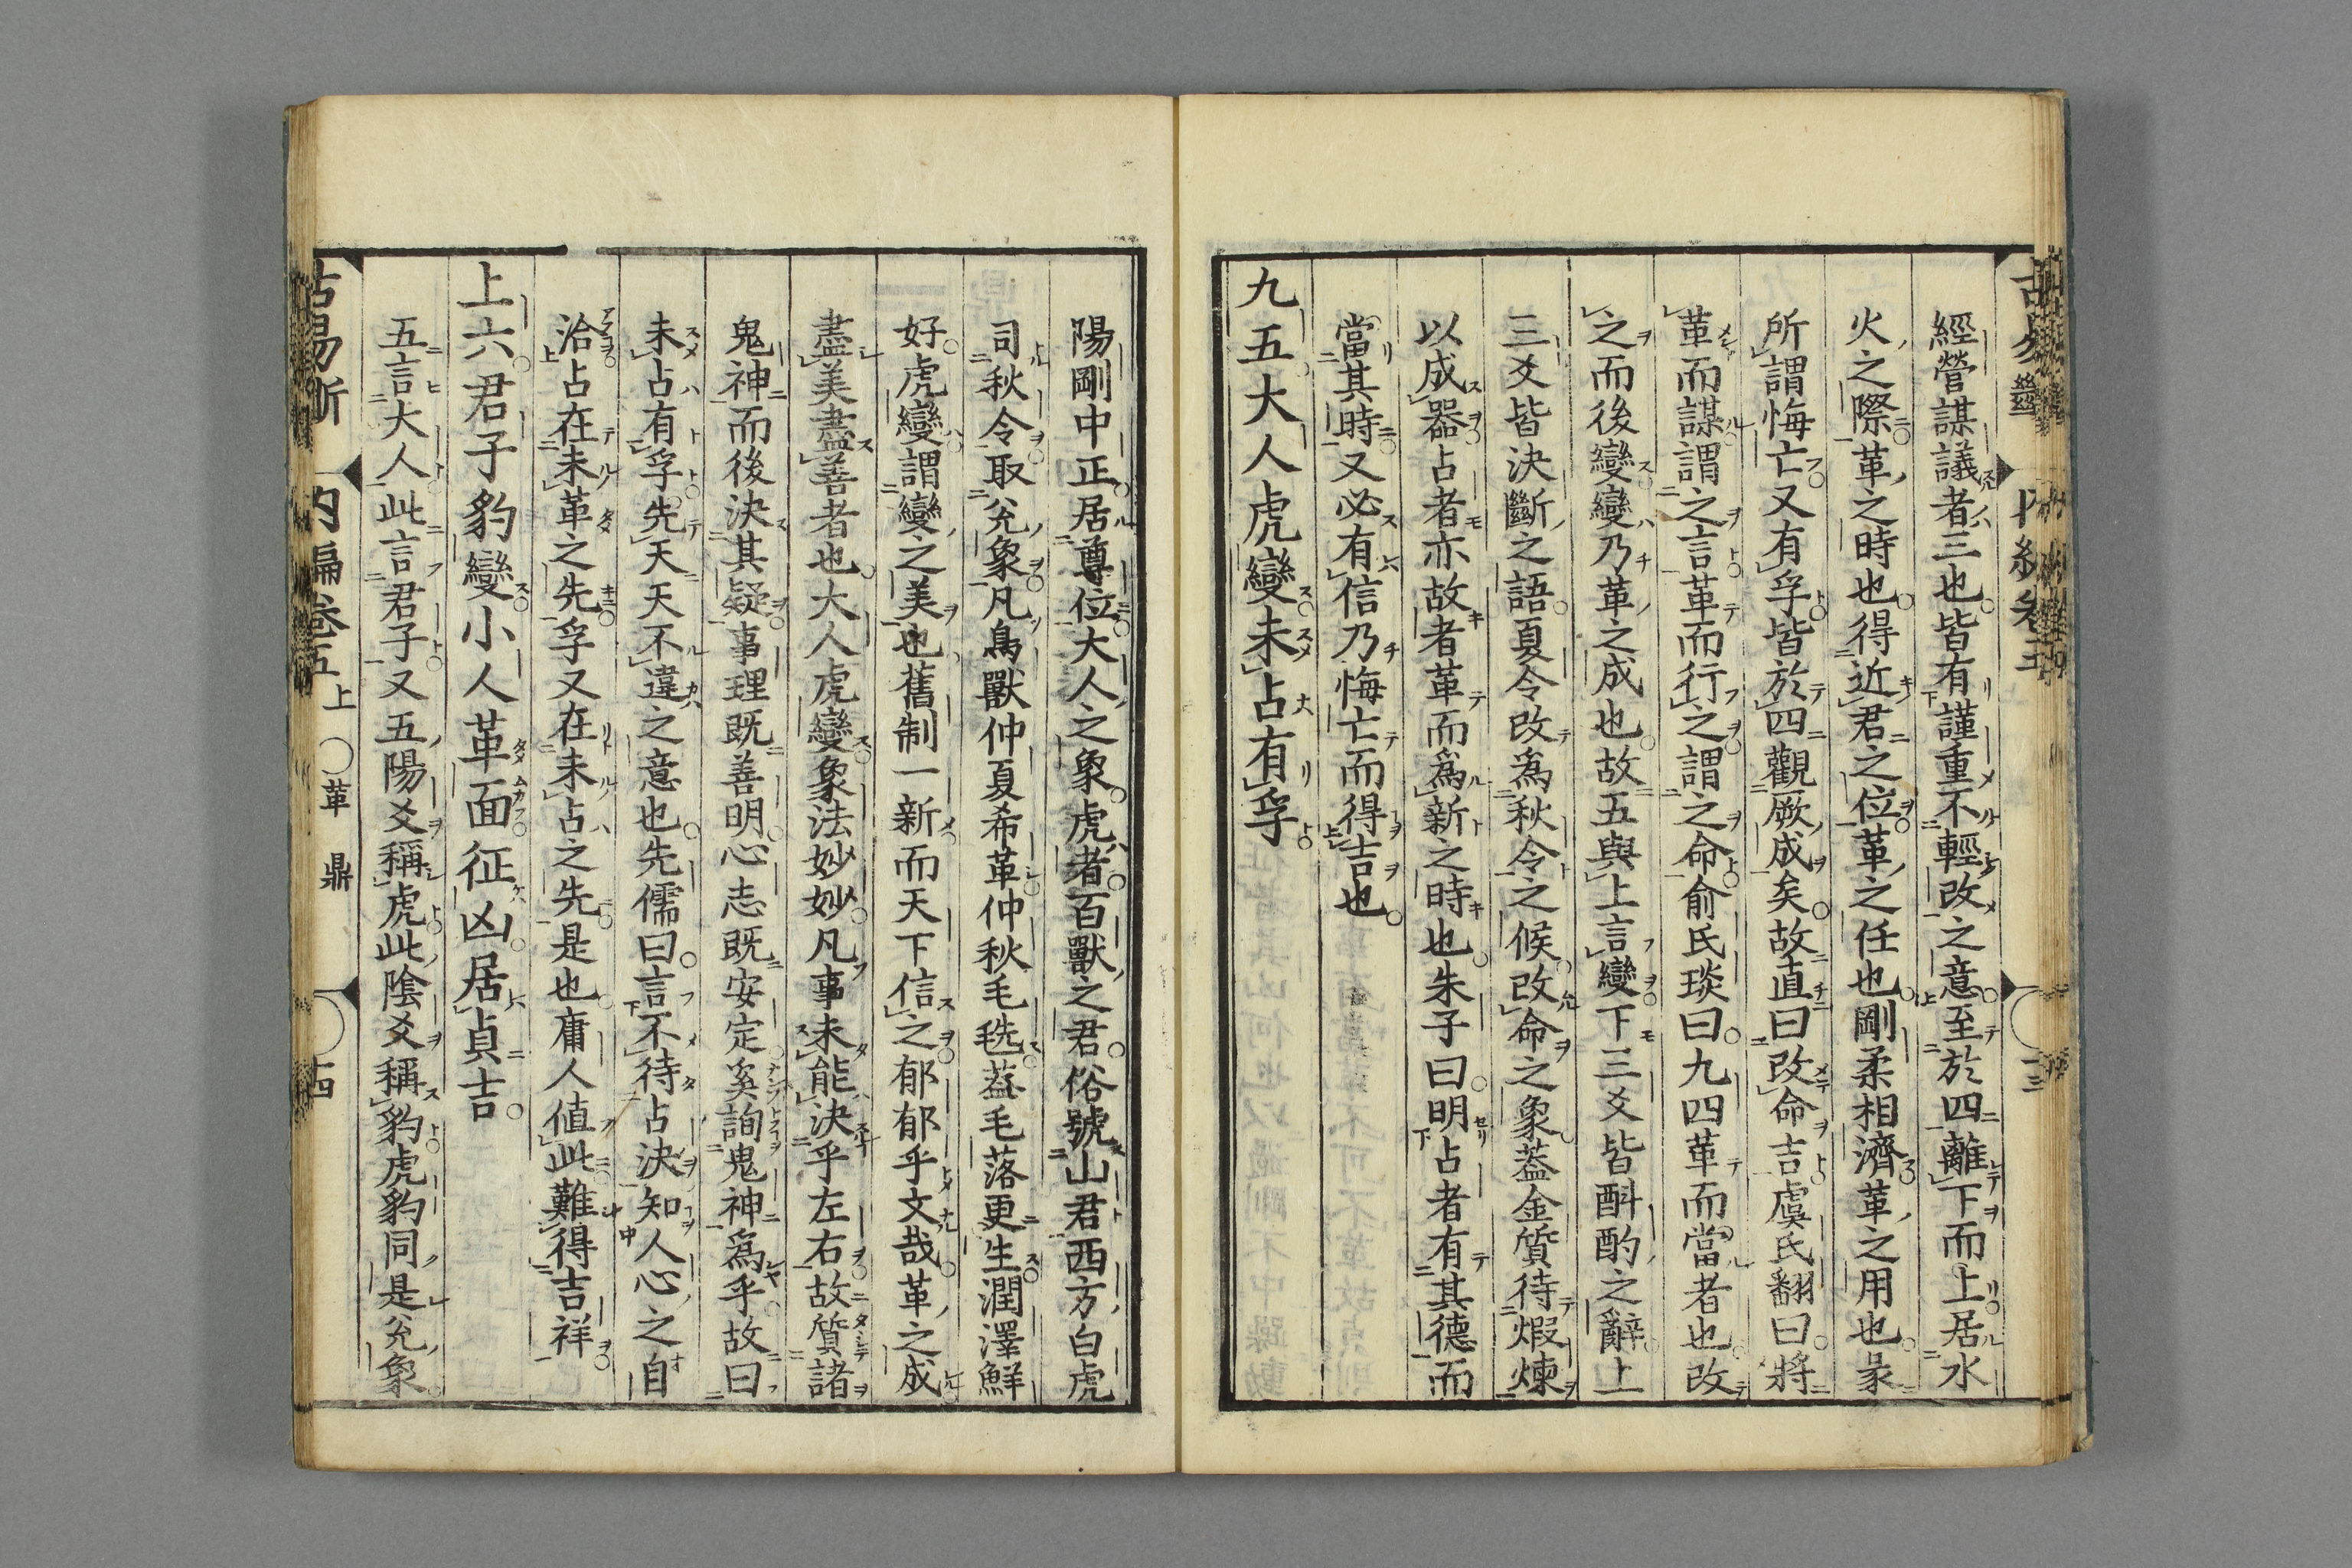 經營謀議者三也皆有謹重不輕改之意至於四離下而上居水
火之際革之時也得近君之位革之任也剛柔相濟革之用也彖
所謂悔亡又有孚皆於四觀厥成矣故直曰改命吉虞氏翻曰將
革而謀謂之言革而行之謂之命俞氏琰曰九四革而當者也改
之而後變變乃革之成也故五與上言變下三爻皆斟酌之辭上
三爻皆決斷之語夏令改為秋令之候改命之象蓋金質待煅煉
以成器占者亦故者革而為新之時也朱子曰明占者有其德而
當其時又必有信乃悔亡而得吉也
九五大人虎變未占有孚
陽剛中正居尊位大人之象虎者百獸之君俗號山君西方白虎
司秋令取兌象凡鳥獸仲夏希革仲秋毛毨葢毛落更生潤澤鮮
好虎變謂變之美也舊制一新而天下信之郁郁乎文哉革之成
盡美盡善者也大人虎變象法妙妙凡事未能決乎左右故質諸
鬼神而後決其疑事理既善明心志既安定奚詢鬼神為乎故曰
未占有孚先天天不違之意也先儒曰言不待占決知人心之自
洽占在未革之先孚又在未占之先是也庸人値此難得吉祥
上六君子豹變小人革面征凶居貞吉
五言大人此言君子又五陽爻稱虎此陰爻稱豹虎豹同是兌象
古易斷 內編卷五上 〇革 鼎 十四